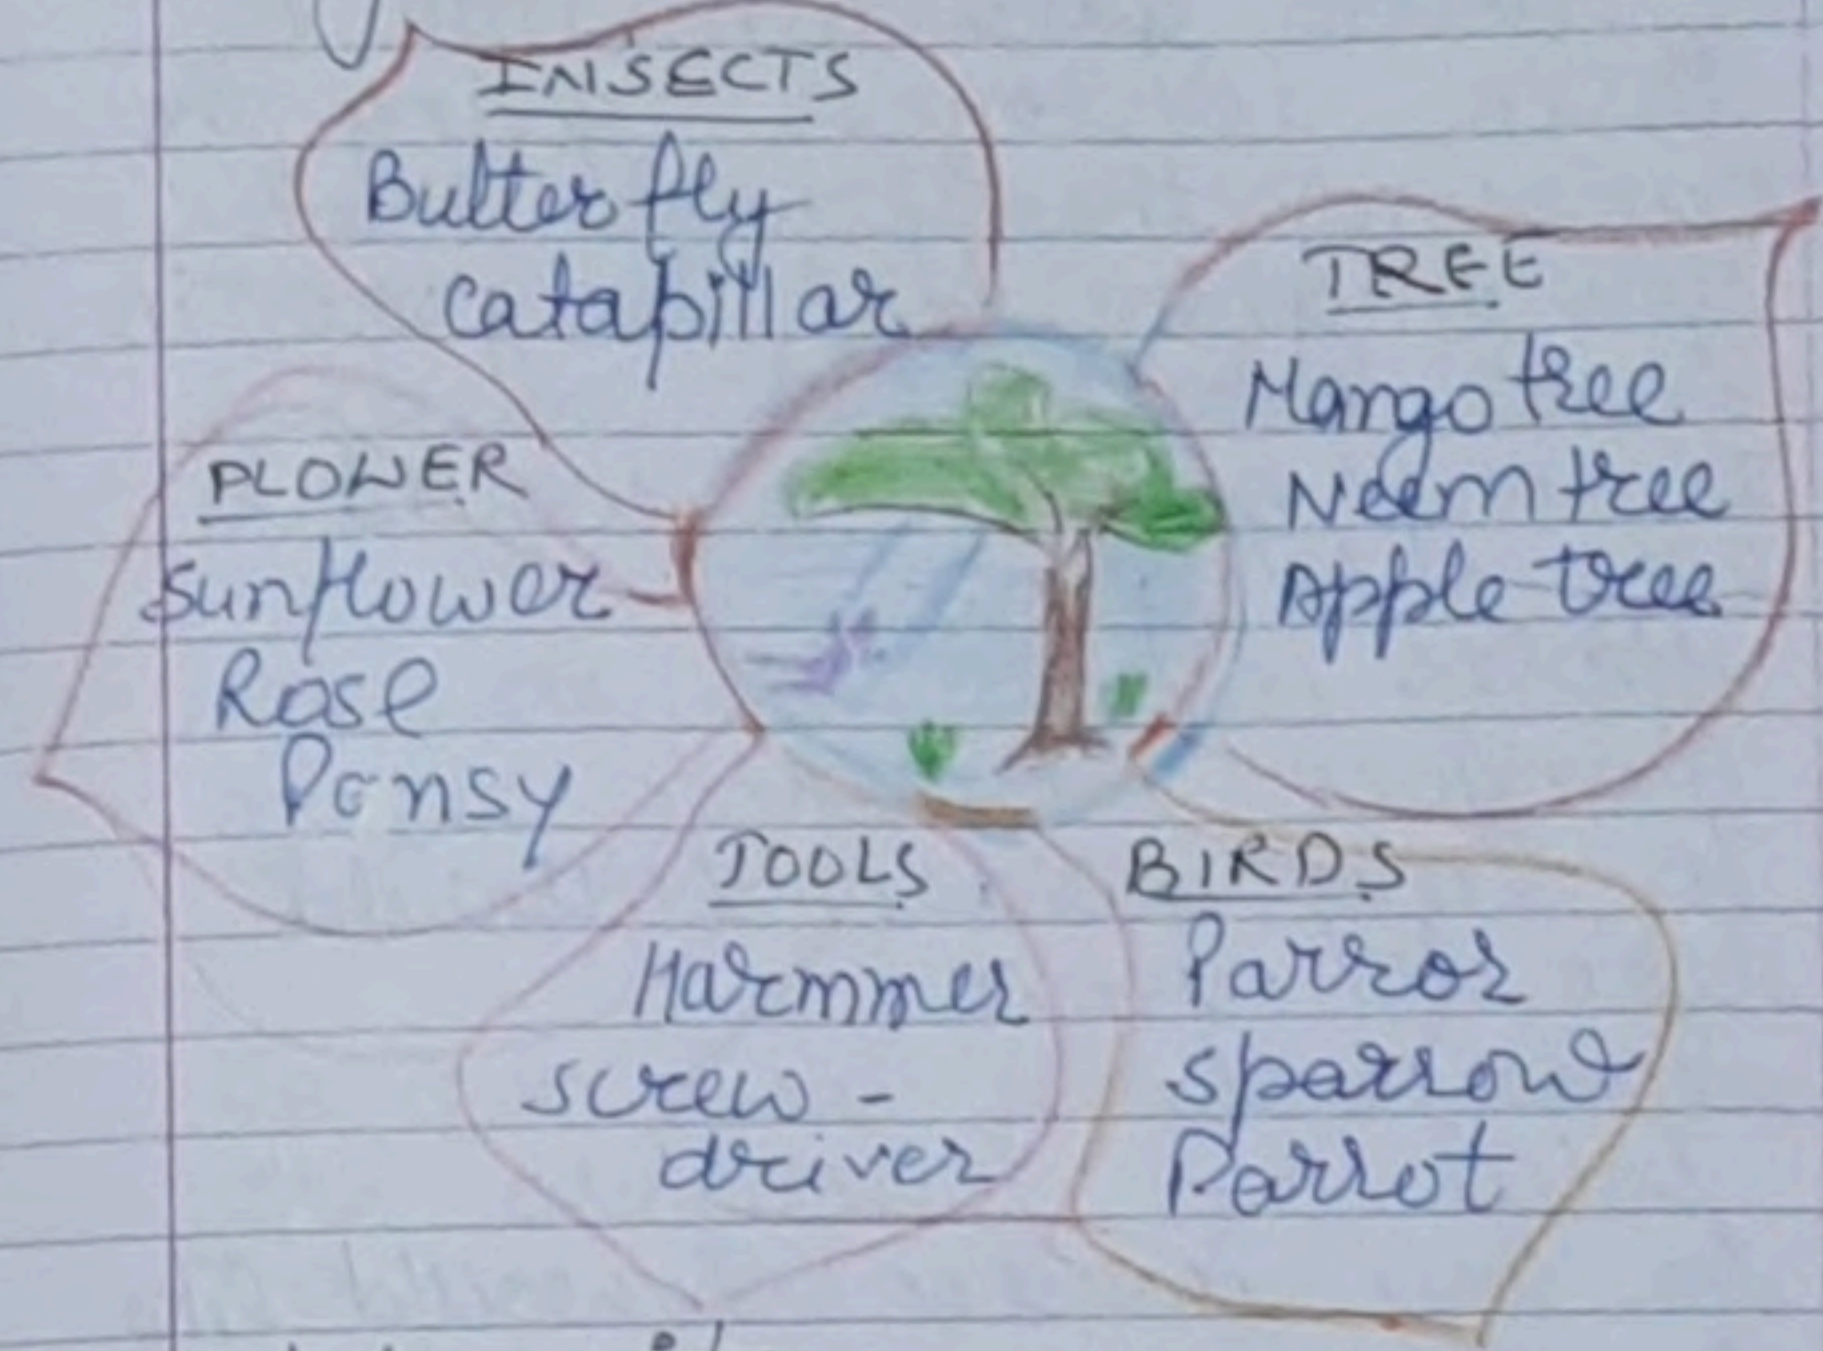 INSECTS
Butterfly
catapillar
TREE
Mango tree
Neem tree
Apple tree
PLOWER
Sunflower
Rose
Pansy
TOOLS
Harmmer
screw -
driver
BIRDS
Parror
sparrow
Parrot